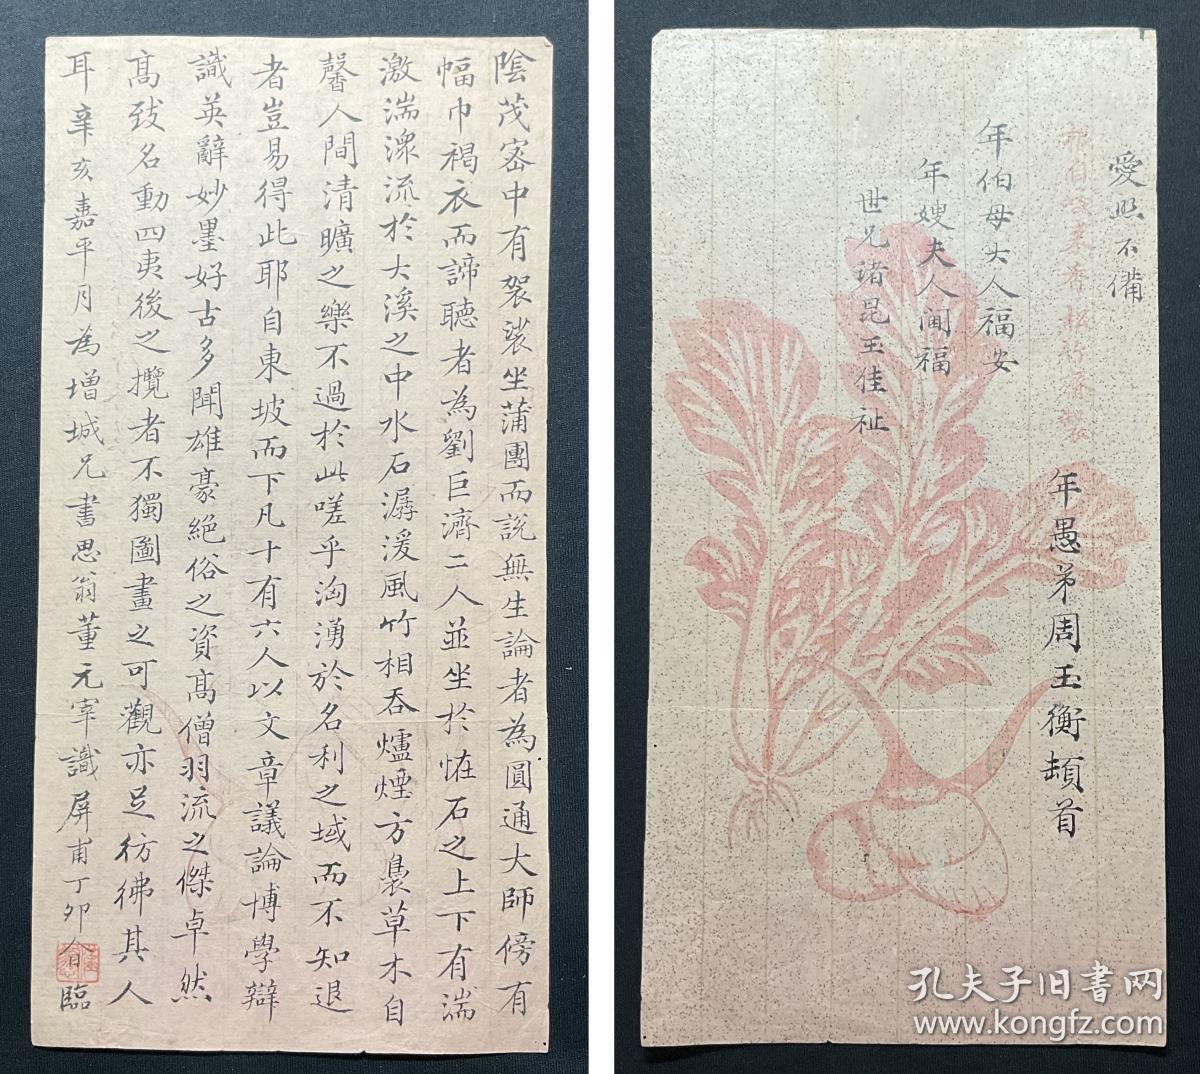 陰茂宻中有袈裟坐蒲團而說無生論者為圓通大師傍有
幅巾褐衣而諦聽者為劉巨濟二人並坐於恠石之上下有湍
激湍潨流於大溪之中水石潺湲風竹相吞爐煙方裊草木自
馨人間清曠之樂不過於此嗟乎洶湧於名利之域而不知退
者豈易得此耶自東坡而下凡十有六人以文章議論博學辯
識英辭妙墨好古多聞雄豪絕俗之資高僧羽流之傑卓然
高致名動四夷後之攬者不獨圖畫之可觀亦足彷彿其人
耳辛亥嘉平月為增城兄書思翁董元宰識屏甫丁卯八月臨
愛照不備
年愚弟周玉衡頓首
年伯母大人福安
年嫂夫人閫福
世兄諸昆玉佳祉
孔夫子旧书网
www.kongfz.com